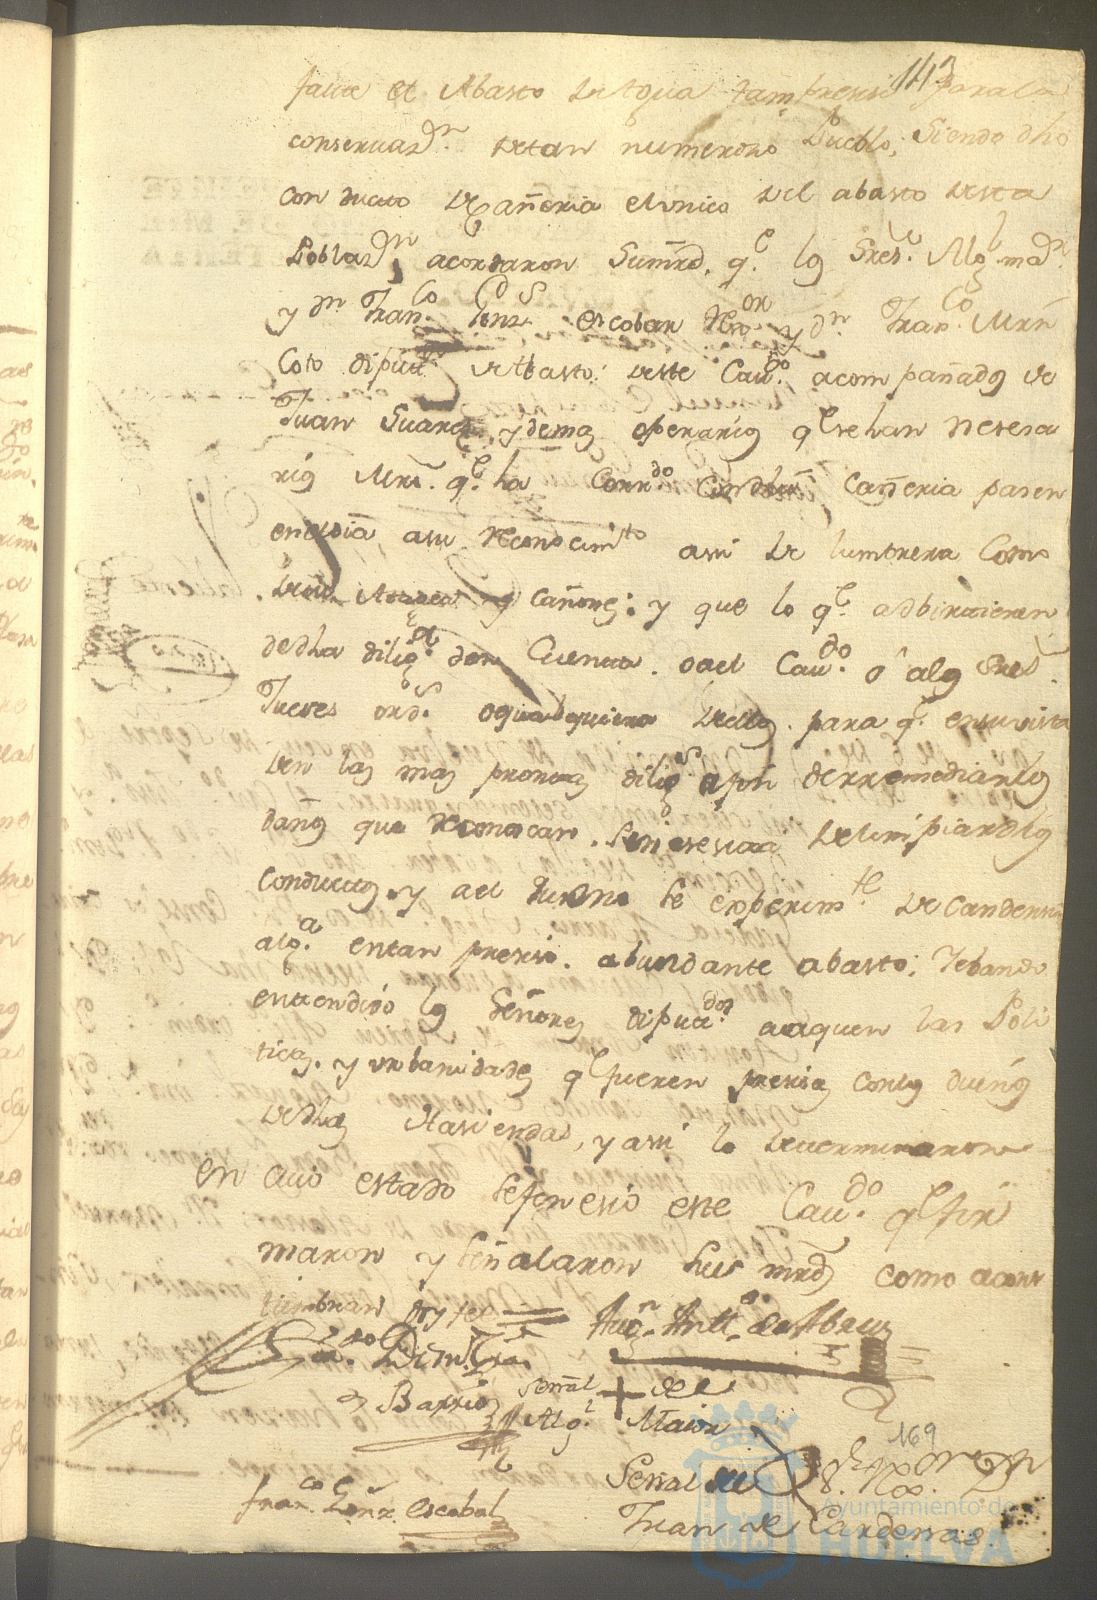 143
falte el Abasto de Agua tam presiso para la
conservaz.n de tan numerozo Pueblo; Siendo dho
conducto de Cañeria el vnico del abasto desta
Poblaz.n acordaron Sus mrd. q.e los Sres. Alg.l ma.r
y dn Fran.co Gonz.s escobar y dn. Fran.co Mrn
Coto diput. de Abasto: deste Cav.do acompañados de
Juan Suares, y demas operarios q.e se han nesesa
rios q.e ha corr.do Cañeria pasen
en esse dia, a su reconosim.to asi de lumbrera como
y Cañones: y que lo q.e adbirtieren
de dha dilig.a den Cuenta. o a el Cav.do ó a los Sres
Jueses ord.s o qualquiera de ellos. para q.e en su vista
den las mas promtas dilig.s a fin de rremediar los
daños que reconoscan. de limpiar dhos
conductos. y a el se experim.te
alg.a en tan presiso. abundante abasto; lebando
entendido los Señores diputa.dos aaquen las Poli
ticas. y vrbanidades q.e fueren presisas con los dueños
de dhas Hasiendas, y asi lo determinaron
en cuio estado se fenesió este Cav.do q.e fir
maron y señalaron sus mrds como acos
tumbran
Aug.n Antt.o de Abreu
Barrio
señal + del
Alg.l Maior
169
Señal de
Fran.co Gonz. escobal
Juan de Cardenas.
Ayuntamiento de
HUELVA